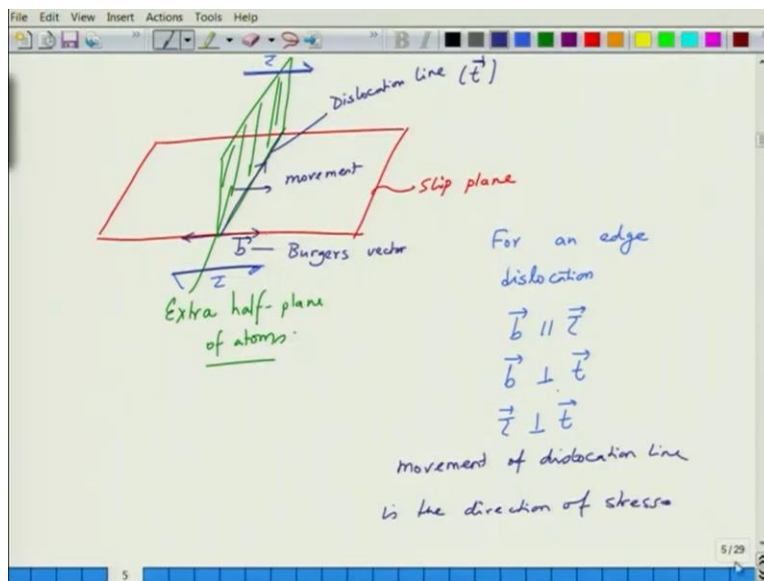 File Edit View Insert Actions Tools Help
B I
τ
Dislocation line (t⃗)
movement
slip plane
b⃗ — Burgers vector
τ
Extra half-plane
of atoms.
For an edge
dislocation
b⃗ || τ⃗
b⃗ ⊥ t⃗
τ⃗ ⊥ t⃗
movement of dislocation line
is the direction of stress
5/29
5